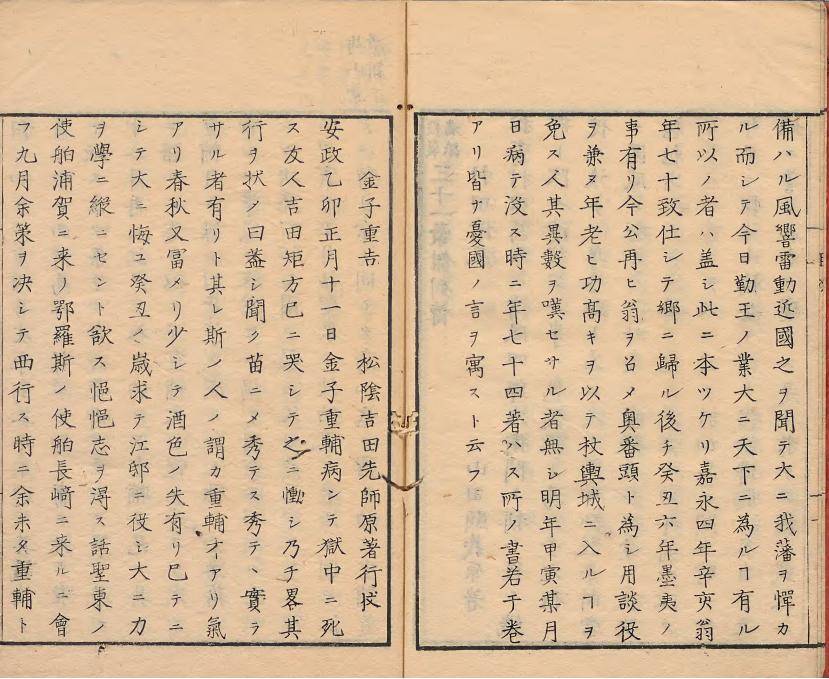 備ハル風響雷動近國之ヲ聞テ大ニ我藩ヲ憚カ
ル而シテ今日勤王ノ業大ニ天下ニ為ルヿ有ル
所以ノ者ハ盖シ此ニ本ツケリ嘉永四年辛亥翁
年七十致仕シテ郷ニ歸ル後チ癸丑六年墨夷ノ
事有リ今公再ヒ翁ヲ召メ奥番頭ト為シ用談役
ヲ兼ヌ年老ヒ功髙キヲ以テ杖輿城ニ入ルヿヲ
免ス人其異數ヲ嘆セサル者無シ明年甲寅某月
日病テ没ス時ニ年七十四著ハス所ノ書若干巻
アリ皆ナ憂國ノ言ヲ寓スト云フ
金子重吉 松陰吉田先師原著行状
安政乙卯正月十一日金子重輔病ンテ獄中ニ死
ス友人吉田矩方已ニ哭シテ之ニ慟シ乃チ畧其
行ヲ状ノ曰蓋シ聞ク苗ニメ秀テス秀テヽ實ラ
サル者有リト其レ斯ノ人ノ謂カ重輔才アリ氣
アリ春秋又冨メリ少シテ酒色ノ失有リ已テニ
シテ大ニ悔ユ癸丑ノ歳求テ江邸ニ役シ大ニ力
ヲ學ニ縱ニセント欲ス悒悒志ヲ淂ス話聖東ノ
使舶浦賀ニ来ノ鄂羅斯ノ使舶長﨑ニ来ルニ會
フ九月余策ヲ决シテ西行ス時ニ余未タ重輔ト